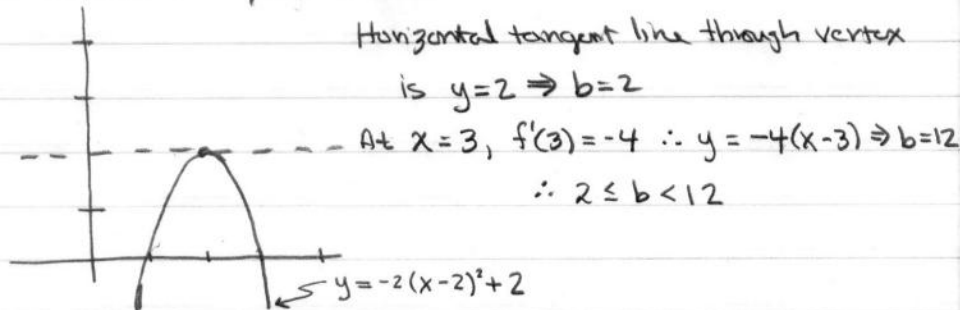 Horizontal tangent line through vertex
is y=2 ⇒ b=2
At x=3, f'(3)=-4 ∴ y=-4(x-3) ⇒ b=12
∴ 2≤b<12
y=-2(x-2)²+2